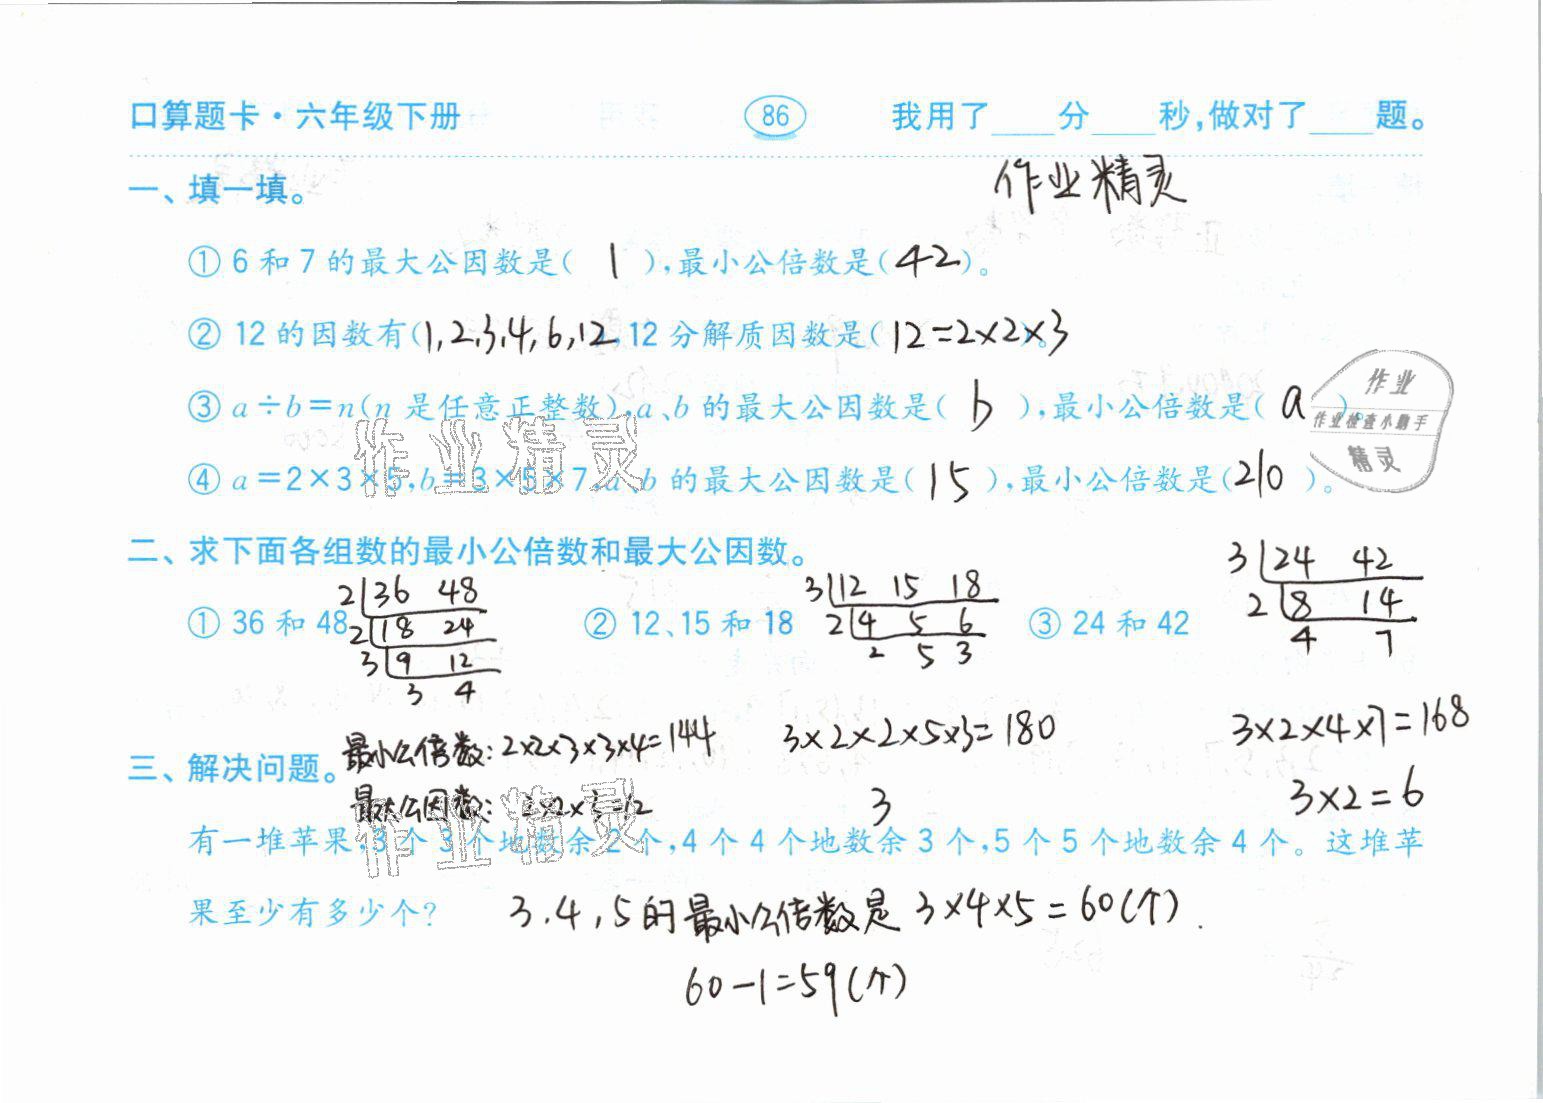 口算题卡·六年级下册 86 我用了____分____秒,做对了____题。
作业精灵
一、填一填。
① 6 和 7 的最大公因数是( 1 ),最小公倍数是(42)。
② 12 的因数有(1,2,3,4,6,12),12 分解质因数是(12=2×2×3)。
③ a÷b=n(n 是任意正整数),a、b 的最大公因数是( b ),最小公倍数是( a )。
作业
作业检查小助手
精灵
作业精灵
④ a=2×3×5,b=3×5×7,a、b 的最大公因数是( 15 ),最小公倍数是(210)。
二、求下面各组数的最小公倍数和最大公因数。
① 36 和 48 ② 12、15 和 18 ③ 24 和 42
2 36 48
2 18 24
3 9 12
3 4
3 12 15 18
2 4 5 6
2 5 3
3 24 42
2 8 14
4 7
最小公倍数:2×2×3×3×4=144 3×2×2×5×3=180 3×2×4×7=168
最大公因数:2×2×3=12 3 3×2=6
三、解决问题。
作业精灵
有一堆苹果,3 个 3 个地数余 2 个,4 个 4 个地数余 3 个,5 个 5 个地数余 4 个。这堆苹
果至少有多少个?
3.4,5的最小公倍数是 3×4×5=60(个).
60-1=59(个)